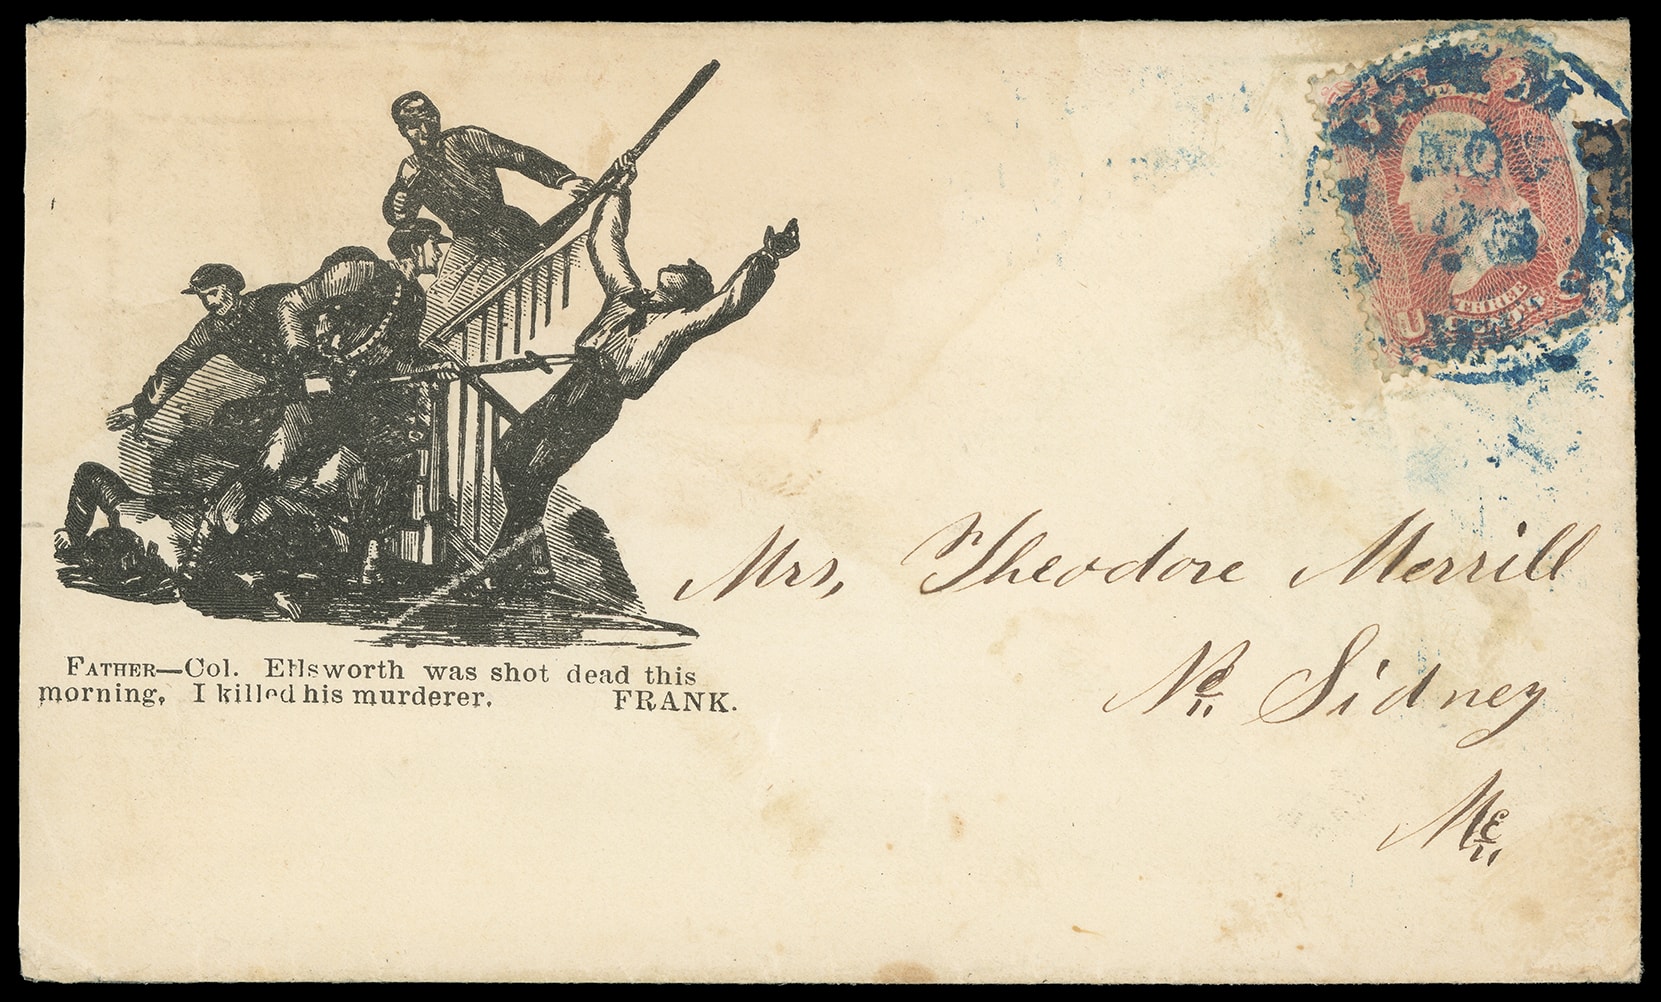 FATHER—Col. Ellsworth was shot dead this
morning. I killed his murderer. FRANK.
Mrs, Theodore Merrill
No. Sidney
Me.
U
THREE